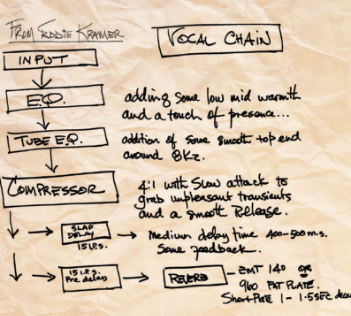 FROM EDDIE KRAMER
VOCAL CHAIN
INPUT
E.Q.
adding some low mid warmth
and a touch of presence...
TUBE E.Q.
addition of some smooth top end
around 8Kz.
COMPRESSOR
4:1 with slow attack to
grab unpleasant transients
and a smooth Release.
SLAP
DELAY
15 I.P.S.
Medium delay time 400-500 m.s.
Some feedback.
15 I.P.S.
Pre delay
REVERB
- EMT 140 OR
960 FAT PLATE.
Short Pre 1 - 1.5 SEC decay